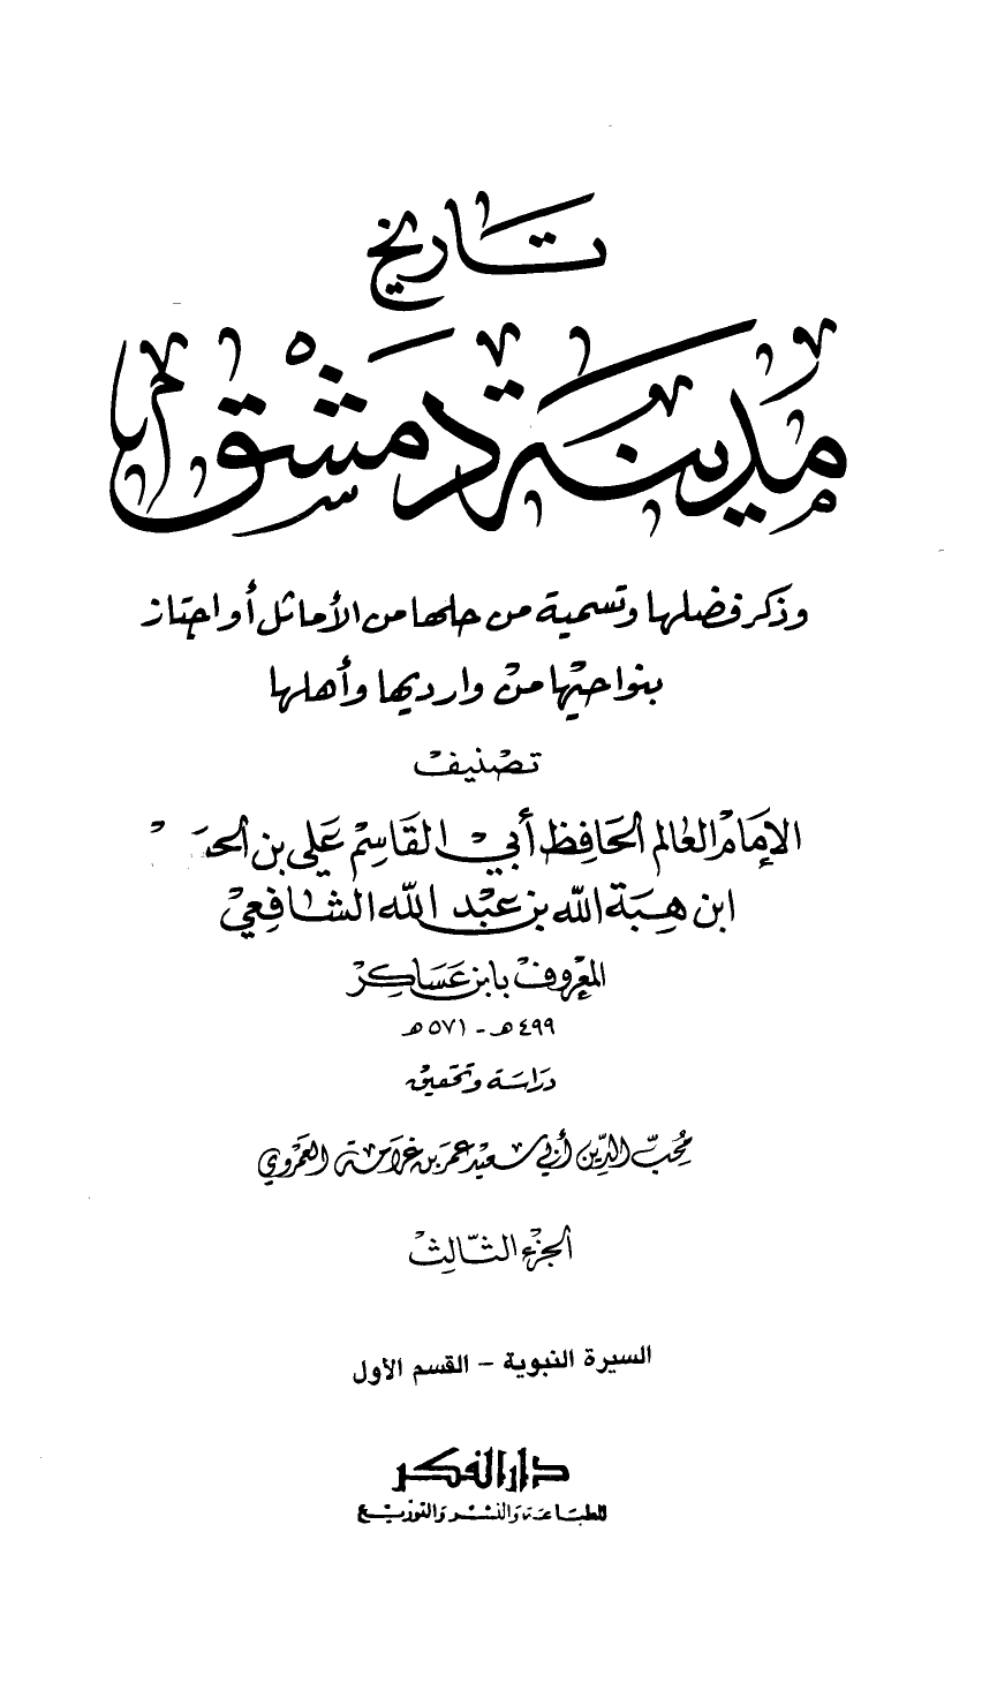 تاريخ
مدينة دمشق
وذكر فضلها وتسمية من حلها من الأماثل أو اجتاز
بنواحيها من وارديها وأهلها
تصنيف
الإمام العالم الحافظ أبي القاسم علي بن
ابن هبة الله بن عبد الله الشافعي
المعروف بابن عساكر
٤٩٩ هـ - ٥٧١ هـ
دراسة وتحقيق
محب الدين أبي سعيد عمر بن غرامة العمروي
الجزء الثالث
السيرة النبوية - القسم الأول
دار الفكر
للطباعة والنشر والتوزيع